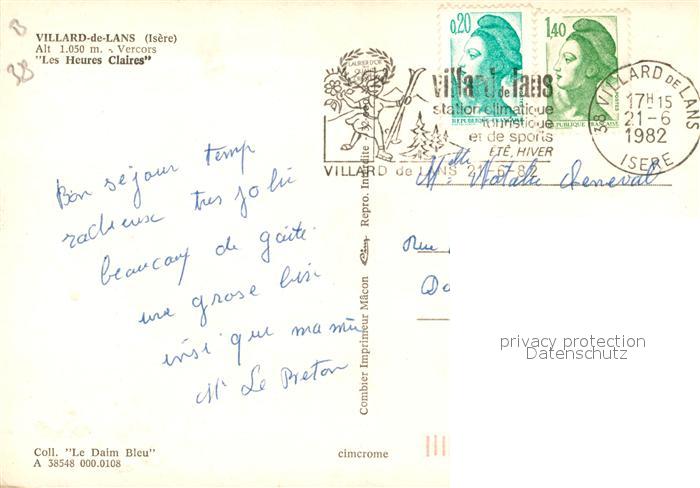 B
38
VILLARD-de-LANS (Isère)
Alt 1.050 m. - Vercors
"Les Heures Claires"
0,20
1,40
REPUBLIQUE FRANÇAISE
REPUBLIQUE FRANÇAISE
LAURIER D'OR
villard de lans
station climatique
touristique
et de sports
ETÉ, HIVER
VILLARD de LANS 21-6-82
38 VILLARD DE LANS
17H15
21-6
1982
ISERE
Bon séjour temp
radieux tres joli
beaucoup de gaite
une grose bisi
insi que mamie
Mr Le Breton
Combier Imprimeur Mâcon Cim Repro. Interdite
Melle Natalie
Rue
privacy protection
Datenschutz
Coll. "Le Daim Bleu"
A 38548 000.0108
cimcrome